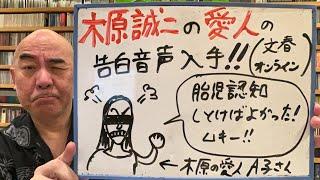 木原誠二の愛人の
告白音声入手!!(文春オンライン)
胎児認知
しとけばよかった!
ムキー!!
←木原の愛人 A子さん